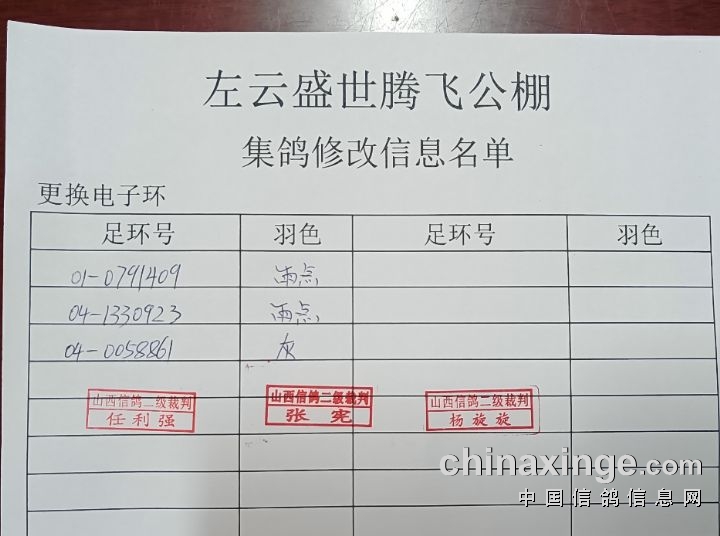 左云盛世腾飞公棚
集鸽修改信息名单
更换电子环
足环号 羽色 足环号 羽色
01-0791409 雨点
04-1330923 雨点
04-0058861 灰
山西信鸽二级裁判 山西信鸽二级裁判 山西信鸽二级裁判
任利强 张宪 杨旋旋
chinaxinge.com
中国信鸽信息网